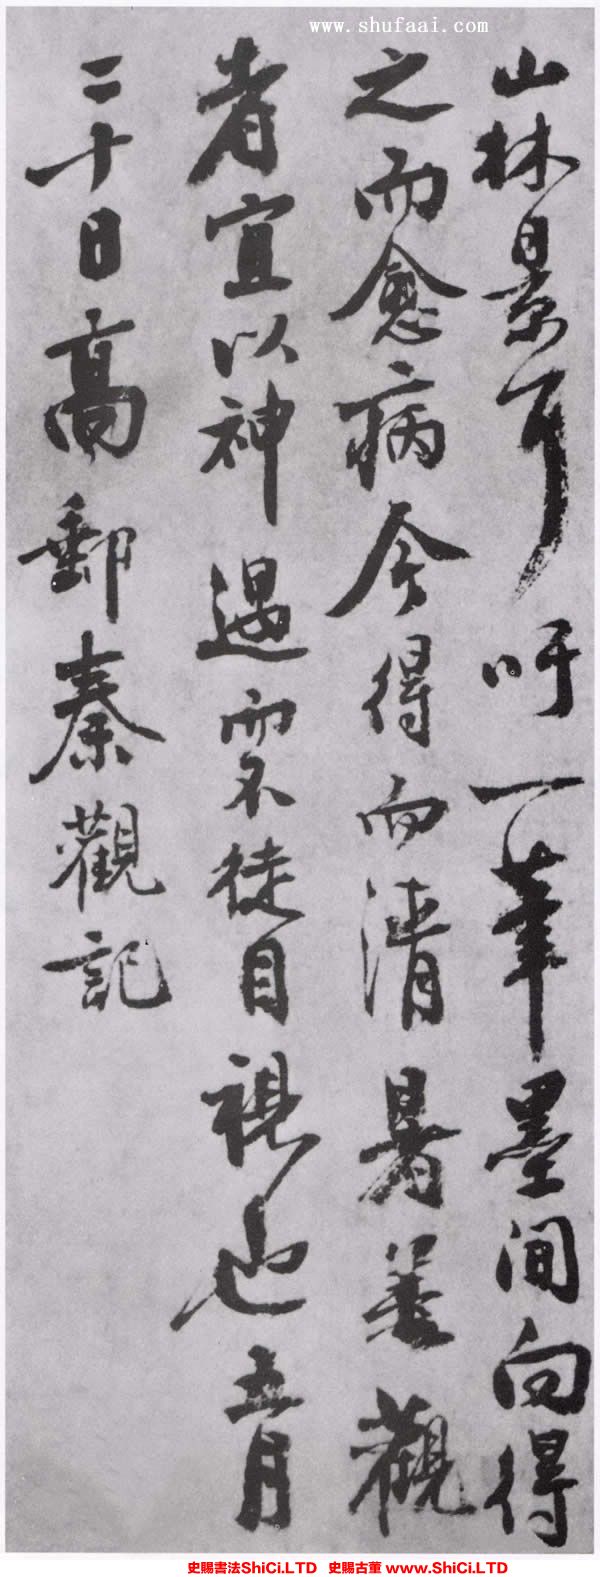 www.shufaai.com
山林景耳吁一筆墨間向得
之而愈病今得而清暑盖觀
者宜以神遇而不徒目視也五月
二十日高郵秦觀記
史賜書法ShiCi.LTD 史賜古董 www.ShiCi.LTD